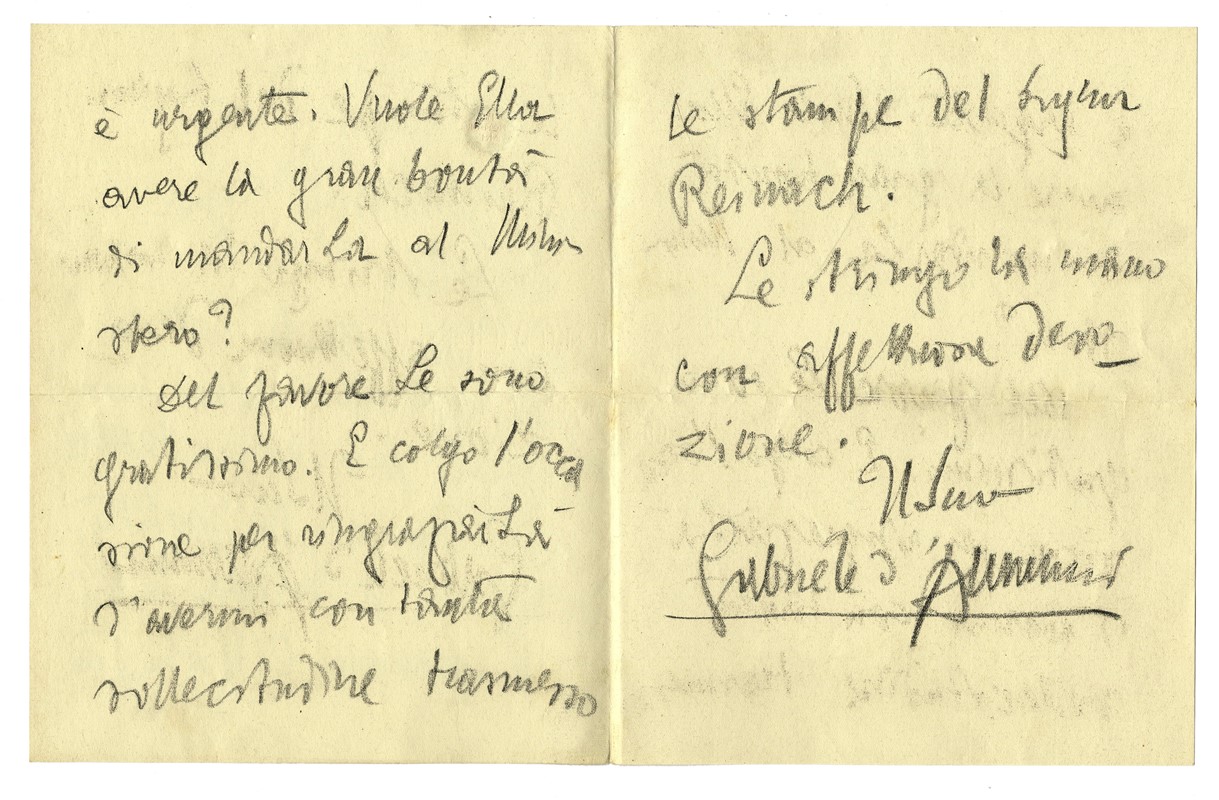 è urgente. Vuole Ella
avere la gran bontà
di mandarLa al Mini
stero?
Del favore Le sono
gratissimo. E colgo l'occa
sione per ringraziarLa
d'avermi con tanta
sollecitudine trasmesso
le stampe del Signor
Reinach.
Le stringo la mano
con affettuosa devo_
zione.
Il Suo
Gabriele d'Annunzio